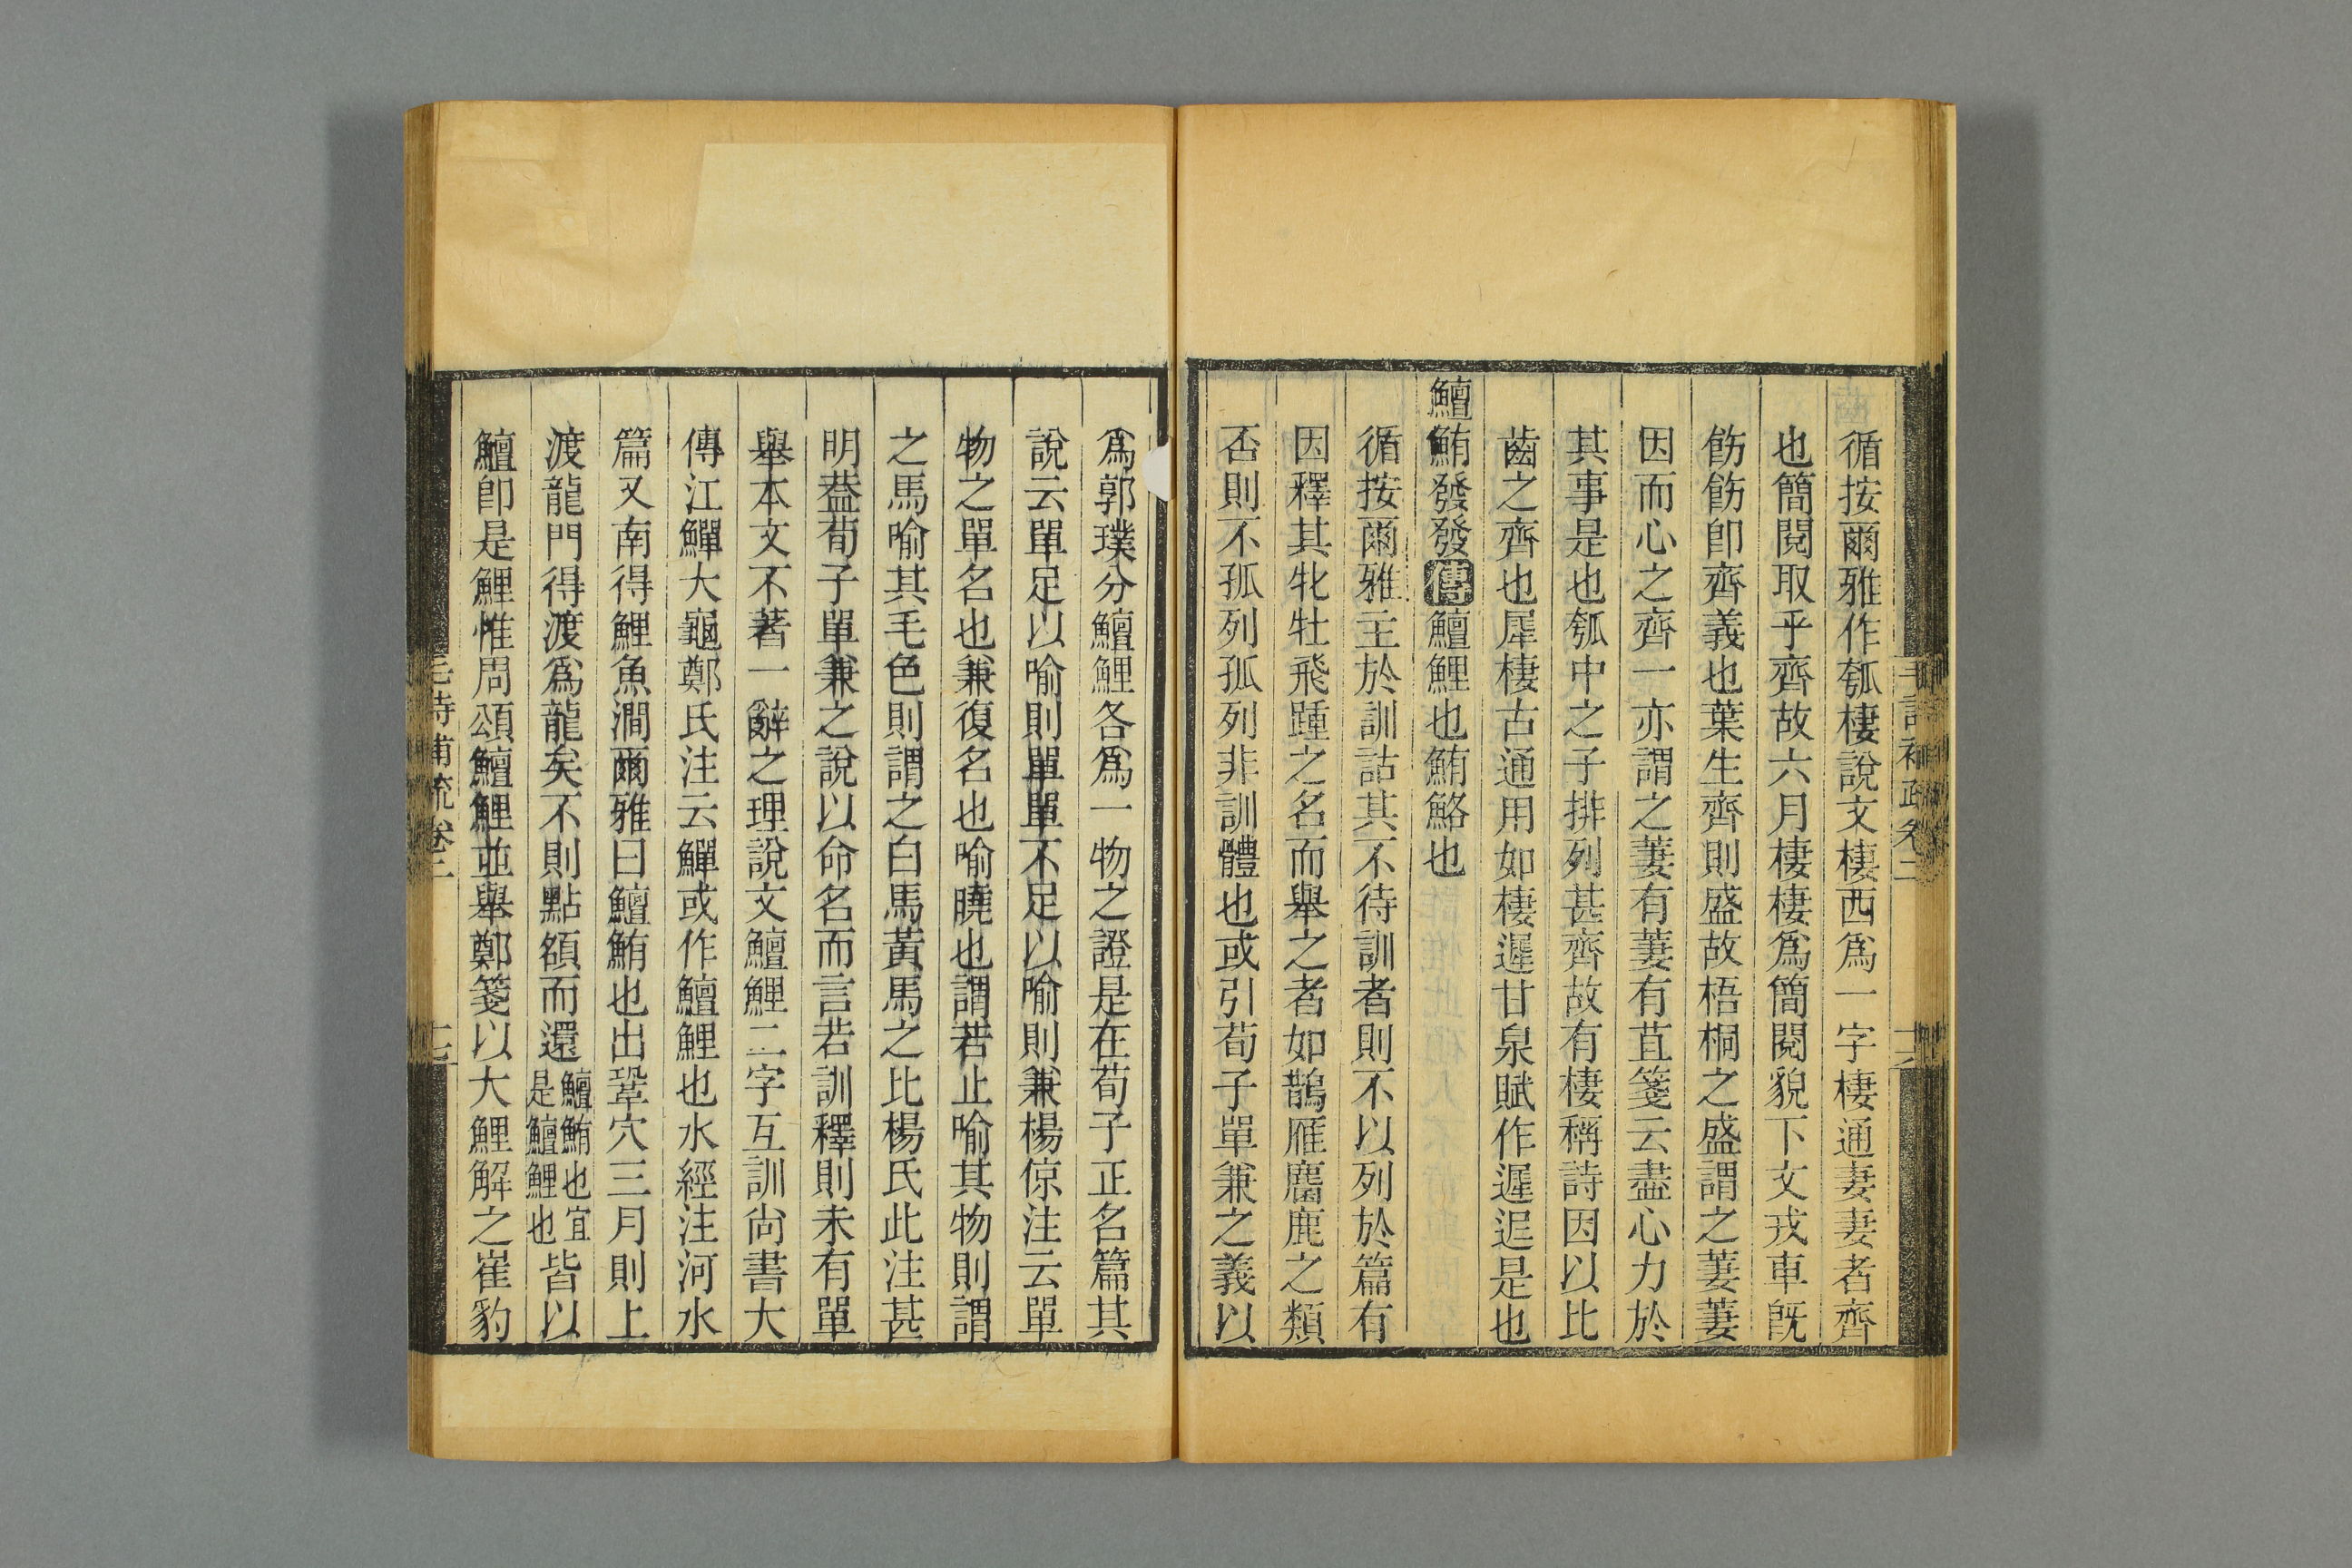 循按爾雅作瓠棲說文棲西爲一字棲通妻妻者齊
也簡閱取乎齊故六月棲棲爲簡閱貌下文戎車旣
飭飭卽齊義也葉生齊則盛故梧桐之盛謂之萋萋
因而心之齊一亦謂之萋有萋有苴箋云盡心力於
其事是也瓠中之子排列甚齊故有棲稱詩因以比
齒之齊也犀棲古通用如棲遲甘泉賦作遲𨒈是也
鱣鮪發發傳鱣鯉也鮪鮥也
循按爾雅主於訓詁其不待訓者則不以列於篇有
因釋其牝牡飛踵之名而舉之者如鵲雁麕鹿之類
否則不孤列孤列非訓體也或引荀子單兼之義以
毛詩補疏卷二 十六
爲郭璞分鱣鯉各爲一物之證是在荀子正名篇其
說云單足以喻則單單不足以喻則兼楊倞注云單
物之單名也兼復名也喻曉也謂若止喻其物則謂
之馬喻其毛色則謂之白馬黃馬之比楊氏此注甚
明葢荀子單兼之說以命名而言若訓釋則未有單
舉本文不著一辭之理說文鱣鯉二字互訓尙書大
傳江鱓大龜鄭氏注云鱓或作鱣鯉也水經注河水
篇又南得鯉魚澗爾雅曰鱣鮪也出鞏穴三月則上
渡龍門得渡爲龍矣不則點額而還鱣鮪也宜是鱣鯉也皆以
鱣卽是鯉惟周頌鱣鯉並舉鄭箋以大鯉解之崔豹
毛詩補疏卷二 十七